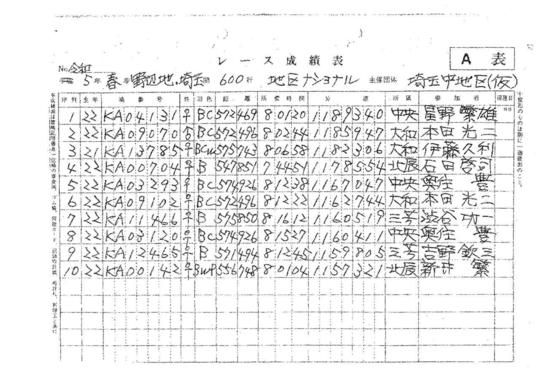 レース成績表
A 表
No. 令和 5年 春季 野辺地、埼玉間 600行 地区ナショナル 主催団体 埼玉中地区(仮)
序列 生年 鳩番号 性 羽色 距離 所要時間 分速 所属 参加者
1 22 KA04131 ♀ BC 572469 80120 1189340 中央 星野繁雄
2 22 KA09070 BC 574926 80244 1185947 大和 本田光二
3 21 KA13785 ♀ BCW 575743 80658 1182306 大和 伊藤久利
4 22 KA00704 B 547851 74451 1178554 北辰 石田啓司
5 22 KA03293 ♀ BC 574926 81238 1167047 中央 奥住豊
6 22 KA09102 ♀ BC 574926 81222 1162744 大和 本田光二
7 22 KA11466 ♀ B 575850 81612 1160519 三芳 渋谷功一
8 22 KA03120 ♀ BC 574926 81527 1160411 中央 奥住豊
9 22 KA12465 ♀ B 571494 81245 1159805 三芳 吉野欽三
10 22 KA00142 ♀ BWP 556748 80104 1157321 北辰 新井繁